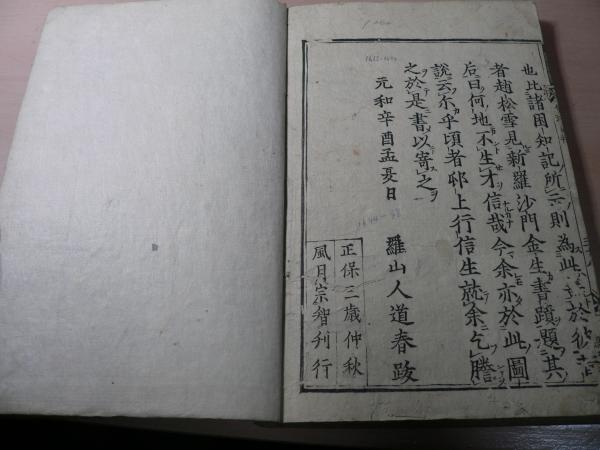 也比諸困知記所示則為此
者趙松雪見新羅沙門金生書蹟題其
后曰何地不生才信哉今余亦於此圖
說云尓乎頃者邨上行信生就余乞謄
之於是書以寄之
元和辛酉孟夏日 羅山人道春跋
正保三歳仲秋
風月宗智刊行